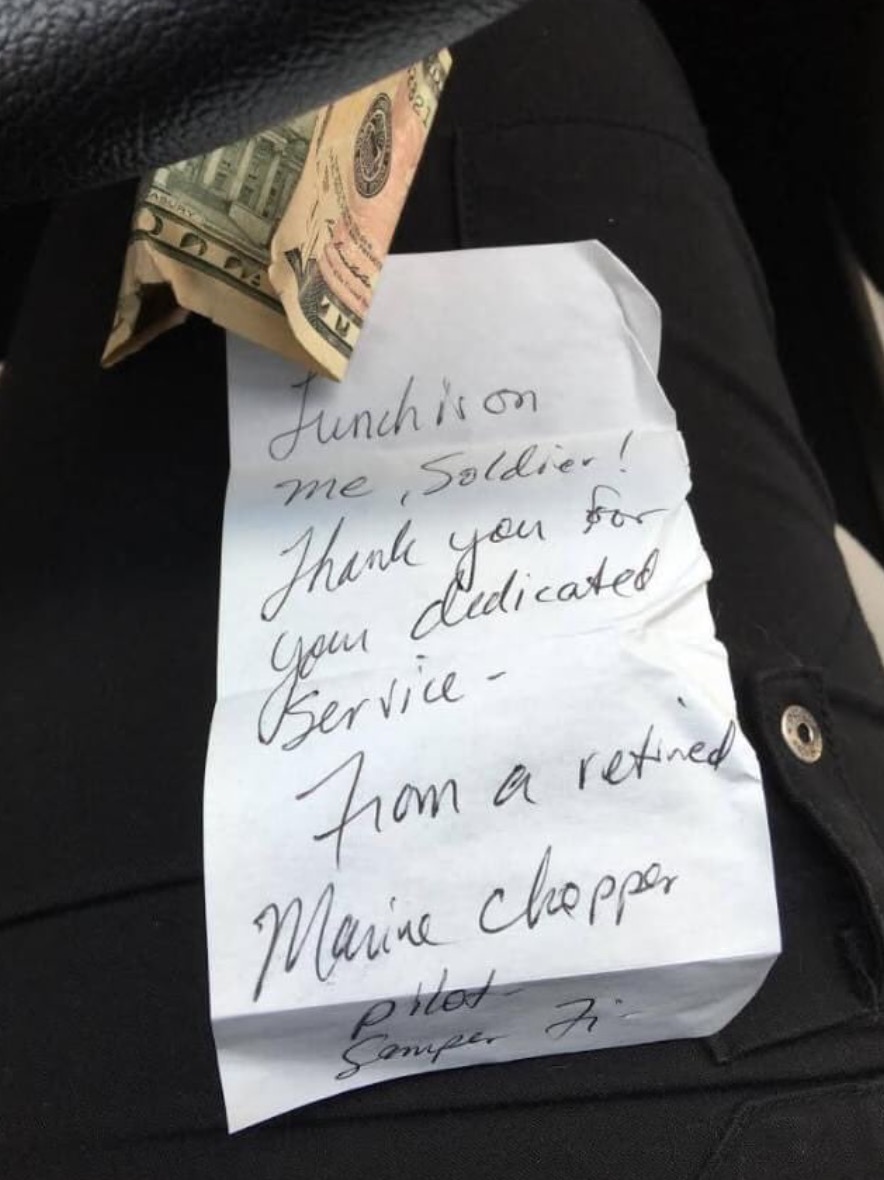 ASURY
Lunch is on
me, Soldier!
Thank you for
your dedicated
service -
From a retired
Marine chopper
pilot -
Semper Fi -